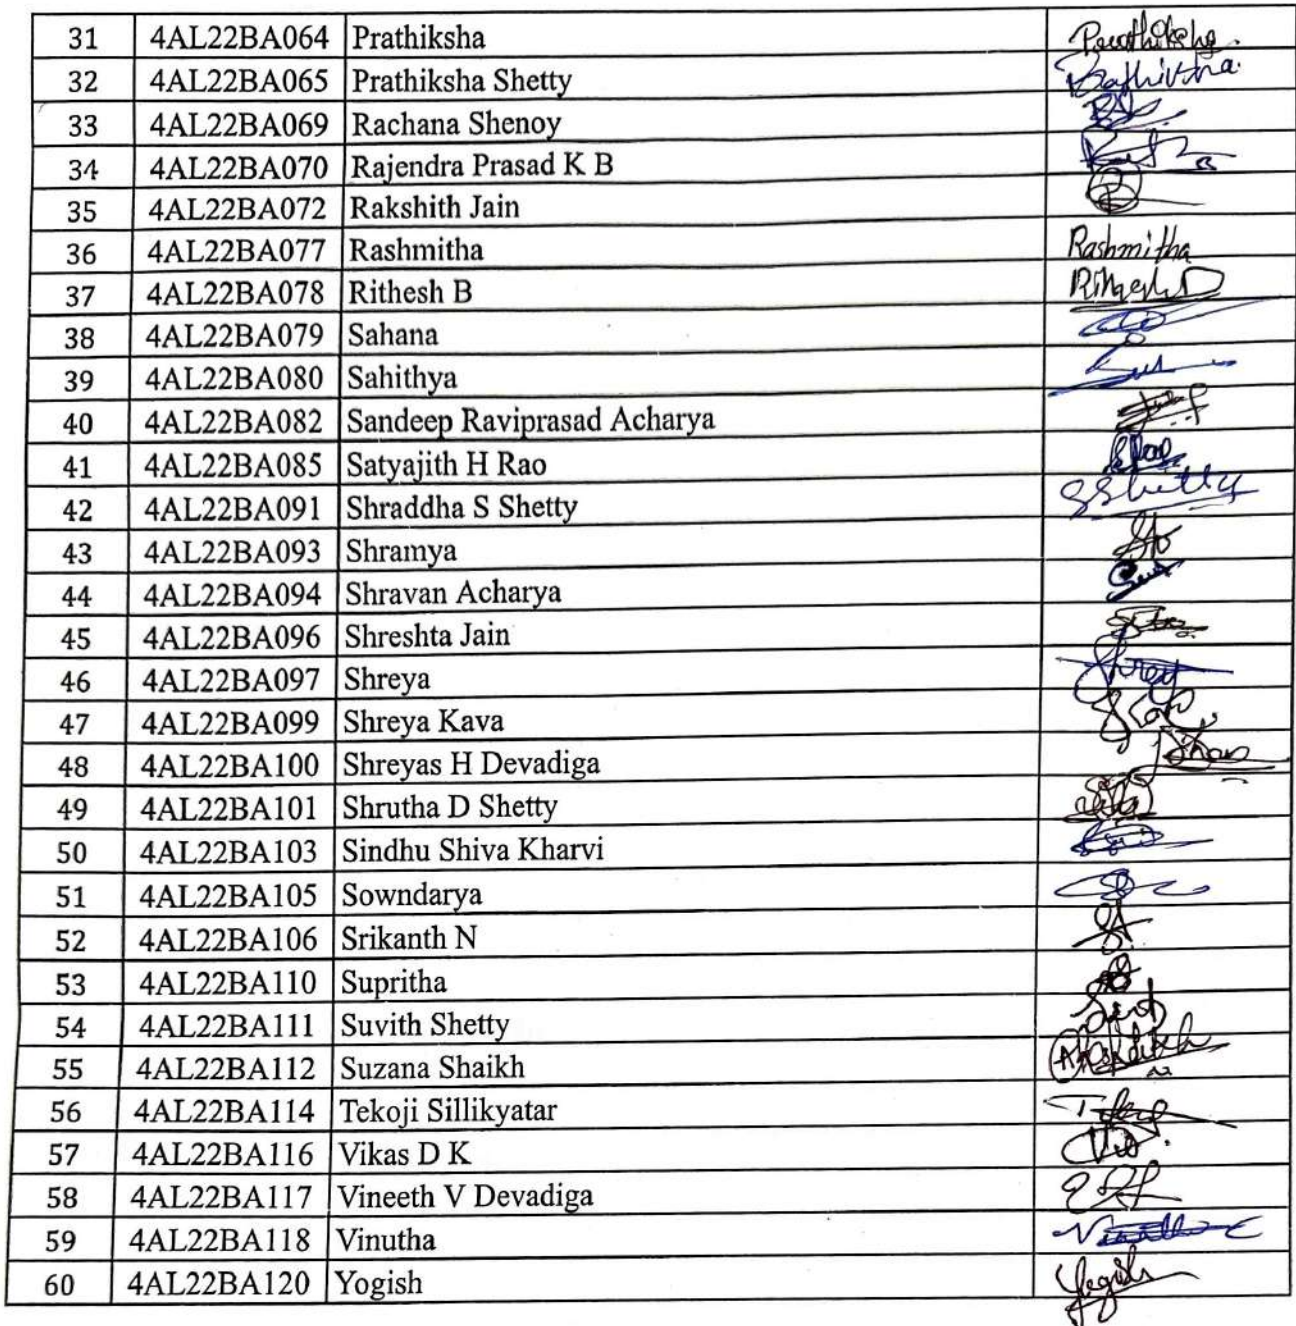 31 4AL22BA064 Prathiksha Prathiksha
32 4AL22BA065 Prathiksha Shetty Prathiksha
33 4AL22BA069 Rachana Shenoy
34 4AL22BA070 Rajendra Prasad K B
35 4AL22BA072 Rakshith Jain
36 4AL22BA077 Rashmitha Rashmitha
37 4AL22BA078 Rithesh B
38 4AL22BA079 Sahana
39 4AL22BA080 Sahithya
40 4AL22BA082 Sandeep Raviprasad Acharya
41 4AL22BA085 Satyajith H Rao
42 4AL22BA091 Shraddha S Shetty SShetty
43 4AL22BA093 Shramya
44 4AL22BA094 Shravan Acharya
45 4AL22BA096 Shreshta Jain
46 4AL22BA097 Shreya Shreya
47 4AL22BA099 Shreya Kava
48 4AL22BA100 Shreyas H Devadiga
49 4AL22BA101 Shrutha D Shetty
50 4AL22BA103 Sindhu Shiva Kharvi
51 4AL22BA105 Sowndarya
52 4AL22BA106 Srikanth N
53 4AL22BA110 Supritha
54 4AL22BA111 Suvith Shetty
55 4AL22BA112 Suzana Shaikh
56 4AL22BA114 Tekoji Sillikyatar
57 4AL22BA116 Vikas D K
58 4AL22BA117 Vineeth V Devadiga
59 4AL22BA118 Vinutha
60 4AL22BA120 Yogish Yogish